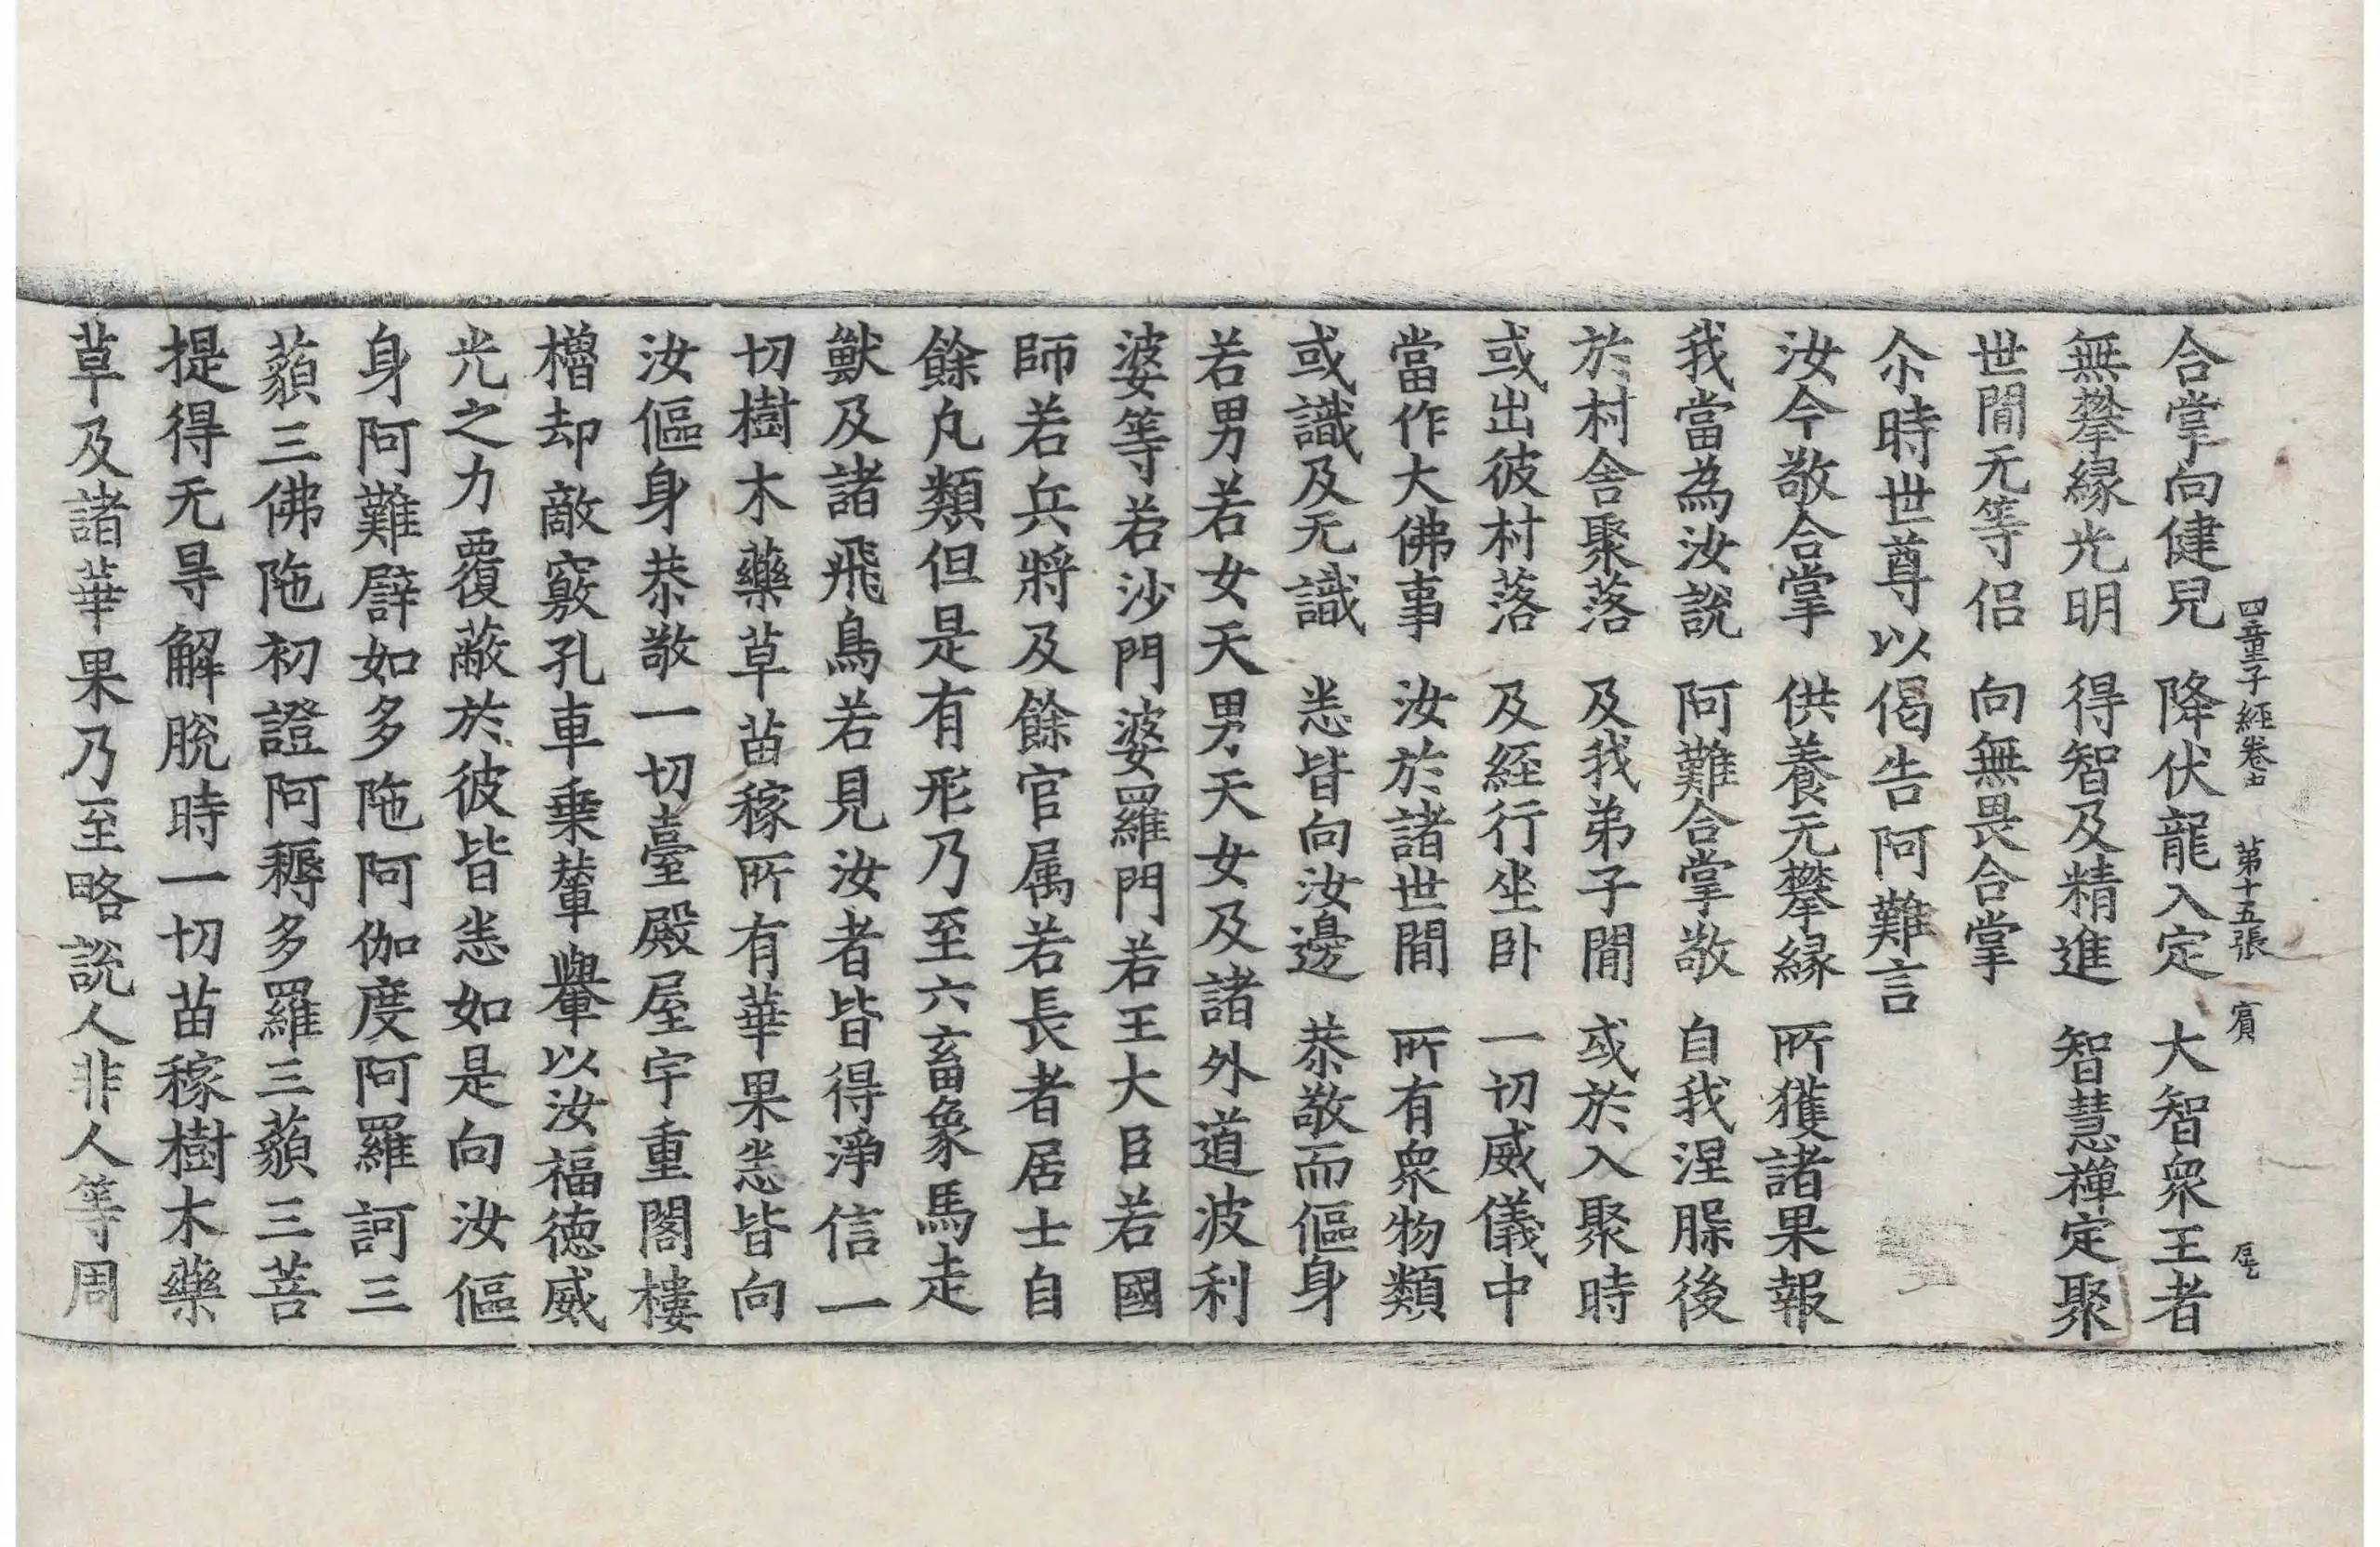 四童子經卷中 第十五張 賔
合掌向健見 降伏龍入定 大智衆王者
無攀緣光明 得智及精進 智慧禪定聚
世間无等侣 向無畏合掌
尒時世尊以偈告阿難言
汝今敬合掌 供養无攀緣 所獲諸果報
我當為汝說 阿難合掌敬 自我涅槃後
於村舍聚落 及我弟子間 或於入聚時
或出彼村落 及經行坐卧 一切威儀中
當作大佛事 汝於諸世間 所有衆物類
或識及无識 恙皆向汝邊 恭敬而傴身
若男若女天男天女及諸外道波利
婆等若沙門婆羅門若王大臣若國
師若兵將及餘官属若長者居士自
餘凡類但是有形乃至六畜象馬走
獸及諸飛鳥若見汝者皆得淨信一
切樹木藥草苗稼所有華果恙皆向
汝傴身恭敬一切臺殿屋宇重閣樓
櫓却敵竅孔車乗輦轝以汝福徳威
光之力覆蔽於彼皆恙如是向汝傴
身阿難譬如多陁阿伽度阿羅訶三
藐三佛陁初證阿耨多羅三藐三菩
提得无㝵解脫時一切苗稼樹木藥
草及諸華果乃至略說人非人等周